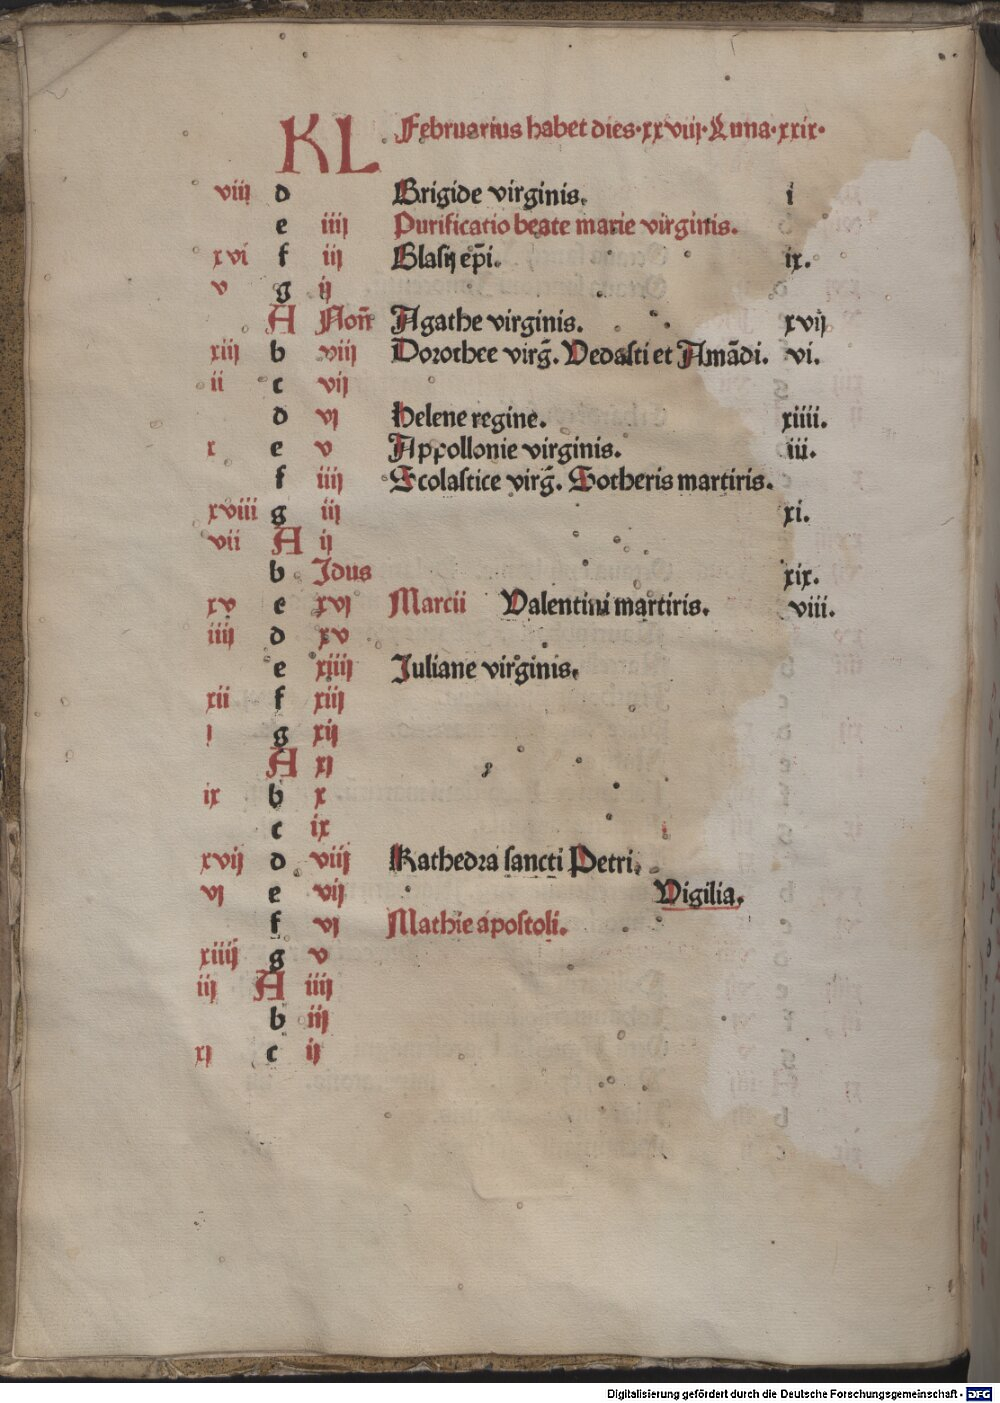 KL Februarius habet dies·xxviij·Luna·xxix·
viij d Brigide virginis. i
e iiij Purificatio beate marie virginis.
xvi f iij Blasij ep̄i. ix.
v g ij
A Non̄ Agathe virginis. xvij
xiij b viij Dorothee virḡ. Vedasti et Amādi. vi.
ii c vij
d vj Helene regine. xiiii.
x e v Appollonie virginis. iii.
f iiij Scolastice virḡ. Sotheris martiris.
xviii g iij xi.
vii A ij
b Idus xix.
xv e xvj Marcii Valentini martiris. viii.
iiij d xv
e xiiij Iuliane virginis.
xii f xiij
j g xij
A xj
ix b x
c ix
xvij d viij Kathedra sancti Petri.
vj e vij Vigilia.
f vj Mathie apostoli.
xiiij g v
iij A iiij
b iij
xj c ij
Digitalisierung gefördert durch die Deutsche Forschungsgemeinschaft - DFG